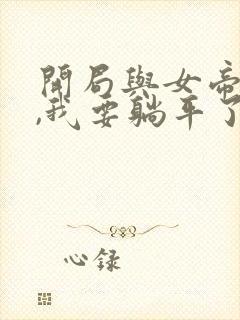 開局與女帝
,我要躺平了
心録